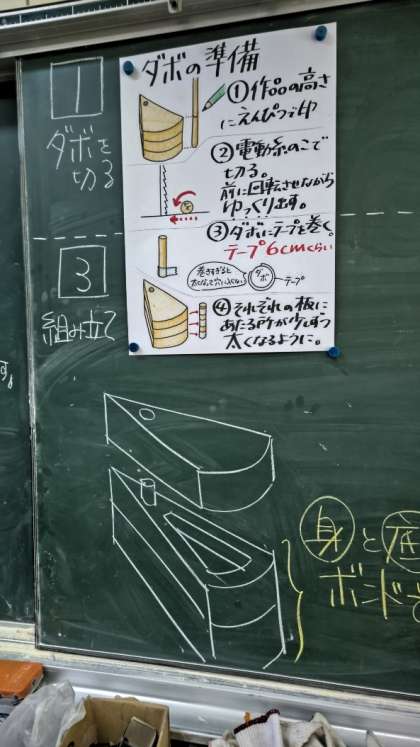 1
ダボを
切る
3
組み立て
す。
ダボの準備
①作品の高さ
にえんぴつで印
②電動糸のこで
切る。
前に回転させながら
ゆっくり出す。
③ダボにテープを巻く。
テープ6cmくらい
巻きすぎると
ダボ
テープ
④それぞれの板に
あたる所が少しずつ
太くなるように。
身と底
ボンドで